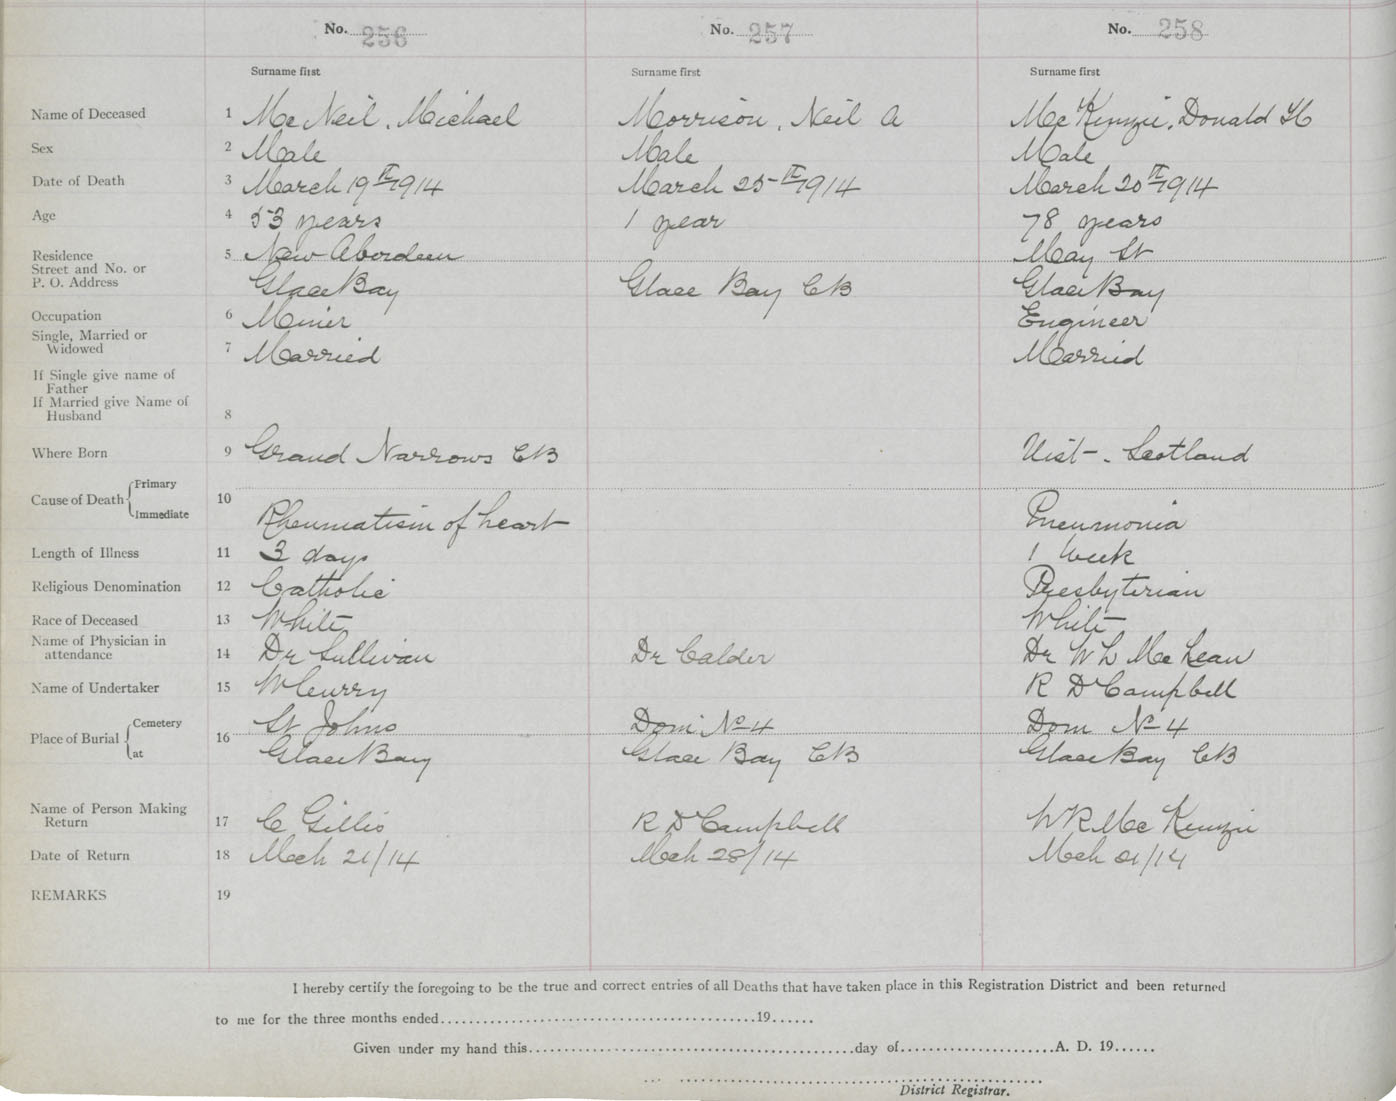 No. 256 No. 257 No. 258
Surname first Surname first Surname first
Name of Deceased 1 Mc Neil, Michael Morrison, Neil A Mc Kenzie, Donald H
Sex 2 Male Male Male
Date of Death 3 March 19th 1914 March 25th 1914 March 20th 1914
Age 4 53 years 1 year 78 years
Residence 5 New Aberdeen May St
Street and No. or
P. O. Address Glace Bay Glace Bay CB Glace Bay
Occupation 6 Miner Engineer
Single, Married or
Widowed 7 Married Married
If Single give name of
Father
If Married give Name of
Husband 8
Where Born 9 Grand Narrows CB Uist - Scotland
Primary
Cause of Death 10
Immediate Rheumatism of heart Pneumonia
Length of Illness 11 3 days 1 Week
Religious Denomination 12 Catholic Presbyterian
Race of Deceased 13 White White
Name of Physician in
attendance 14 Dr Sullivan Dr Calder Dr W L McLean
Name of Undertaker 15 W Curry R D Campbell
Cemetery St Johns Dom No 4 Dom No 4
Place of Burial 16
at Glace Bay Glace Bay CB Glace Bay CB
Name of Person Making
Return 17 C Gillis R D Campbell W R Mc Kenzie
Date of Return 18 Mch 21/14 Mch 28/14 Mch /14
REMARKS 19
I hereby certify the foregoing to be the true and correct entries of all Deaths that have taken place in this Registration District and been returned
to me for the three months ended 19
Given under my hand this day of A. D. 19
District Registrar.